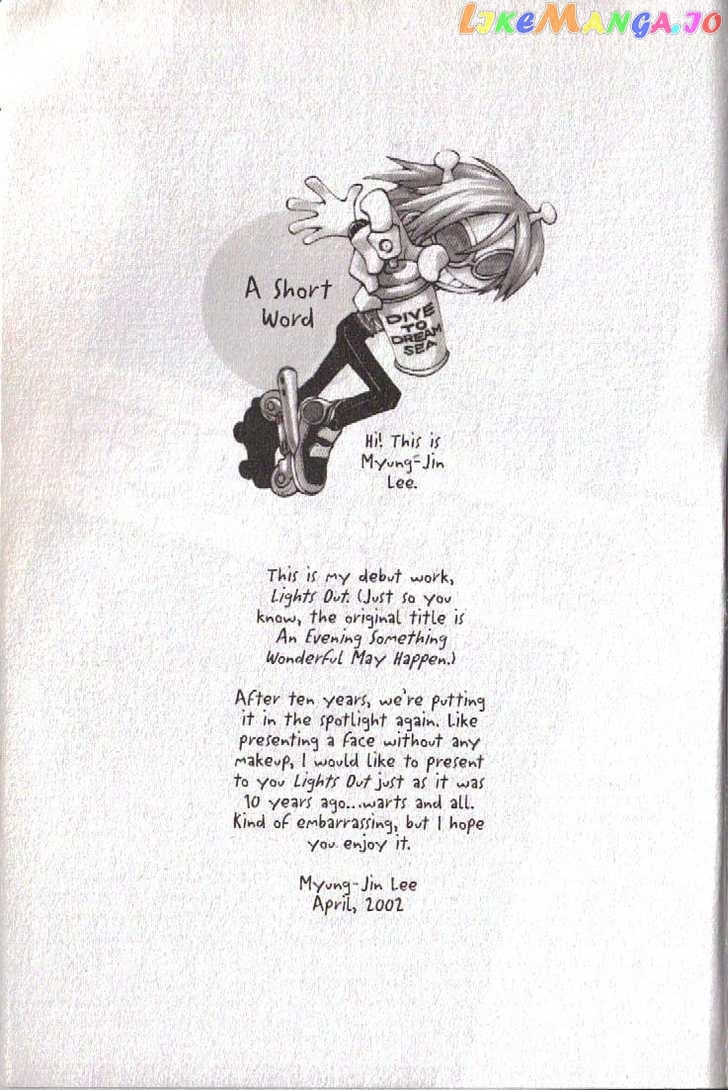 LIKEMANGA.IO
A Short
Word
DIVE
TO
DREAM
SEA
Hi! This is
Myung-Jin
Lee.
This is my debut work,
Lights Out. (Just so you
know, the original title is
An Evening Something
Wonderful May Happen.)
After ten years, we're putting
it in the spotlight again. Like
presenting a face without any
makeup, I would like to present
to you Lights Out just as it was
10 years ago...warts and all.
Kind of embarrassing, but I hope
you enjoy it.
Myung-Jin Lee
April, 2002